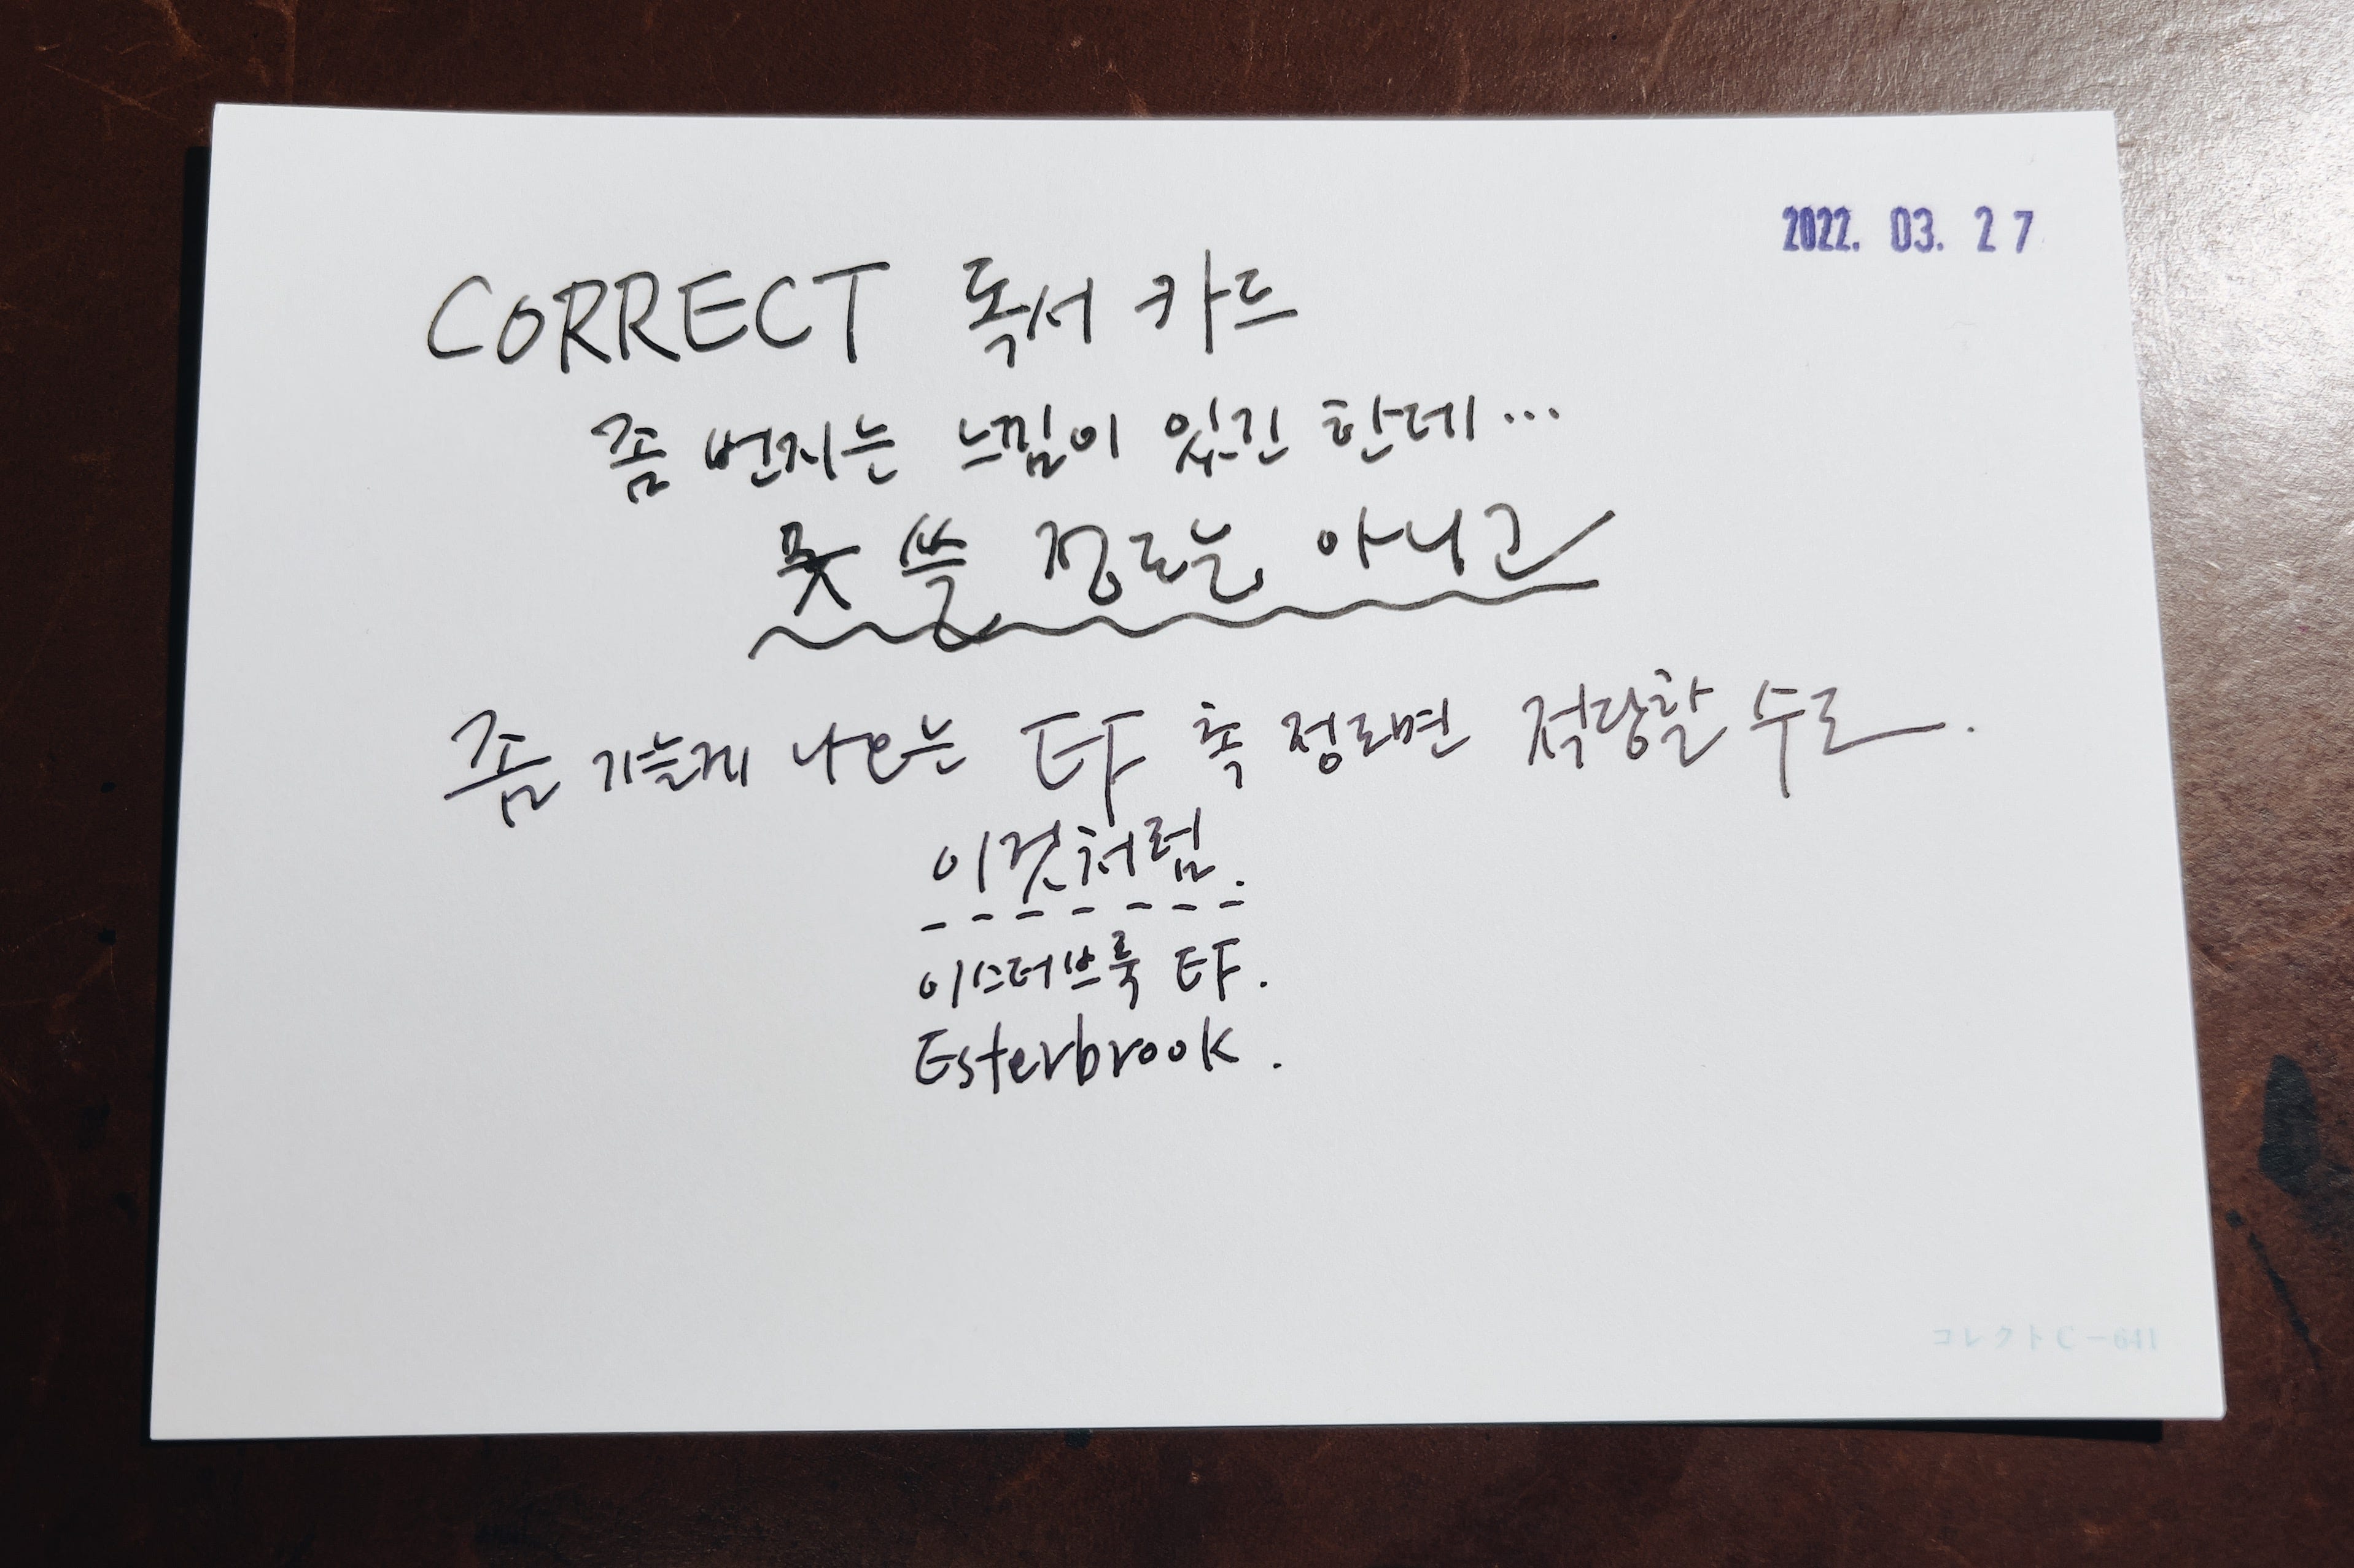 2022. 03. 27
CORRECT 독서 카드
좀 번지는 느낌이 있긴 한데...
못 쓸 정도는 아니고
좀 가늘게 나오는 EF 촉 정도면 적당할 수도.
이것처럼.
이스터브룩 EF.
Esterbrook.
コレクトC-641